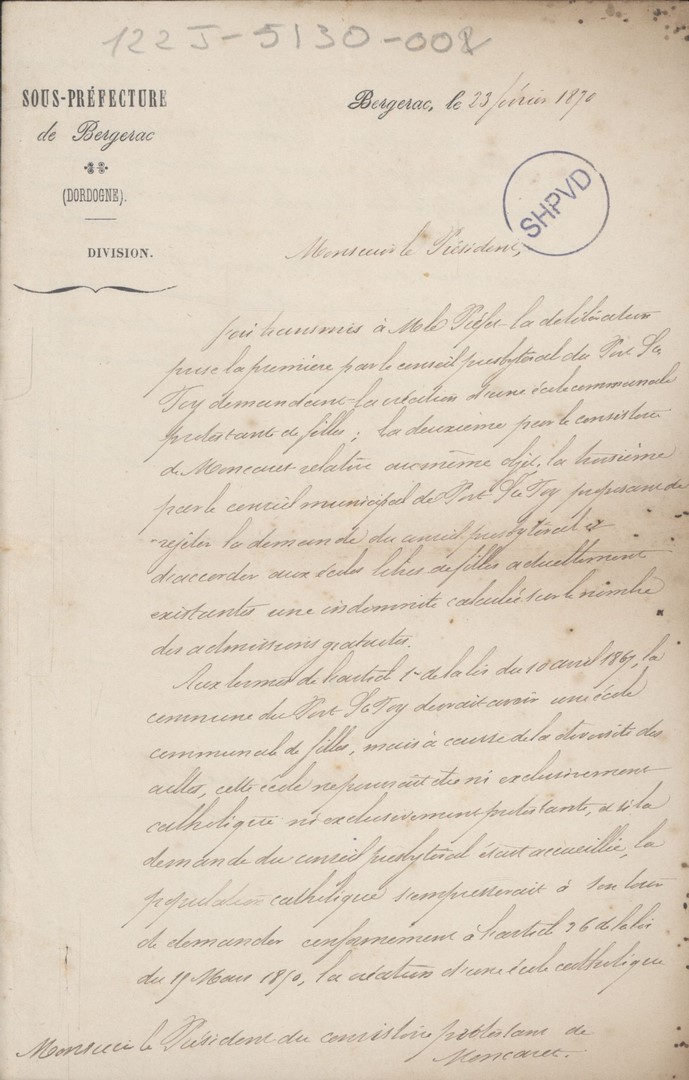 122 J-5130-008
SOUS-PRÉFECTURE
de Bergerac
(DORDOGNE).
DIVISION.
Bergerac, le 23 février 1870
SHPVD
Monsieur le Président,
J'ai transmis à M. le Préfet la délibération
prise la première par le conseil presbytéral du Port Ste
Foy demandant la création d'une école communale
protestante de filles ; la deuxième par le consistoire
de Moncaret relative au même objet, la troisième
par le conseil municipal de Port Ste Foy proposant de
rejeter la demande du conseil presbytéral et
d'accorder aux écoles libres de filles actuellement
existantes une indemnité calculée sur le nombre
des admissions gratuites.
Aux termes de l'article 1er de la loi du 10 avril 1867, la
commune du Port Ste Foy devrait avoir une école
communale de filles, mais à cause de la diversité des
cultes, cette école ne pourrait être ni exclusivement
catholique ni exclusivement protestante, et si la
demande du conseil presbytéral était accueillie, la
population catholique s'empresserait à son tour
de demander conformément à l'article 36 de la loi
du 15 Mars 1850, la création d'une école catholique
Monsieur le Président du consistoire protestant de
Moncaret.